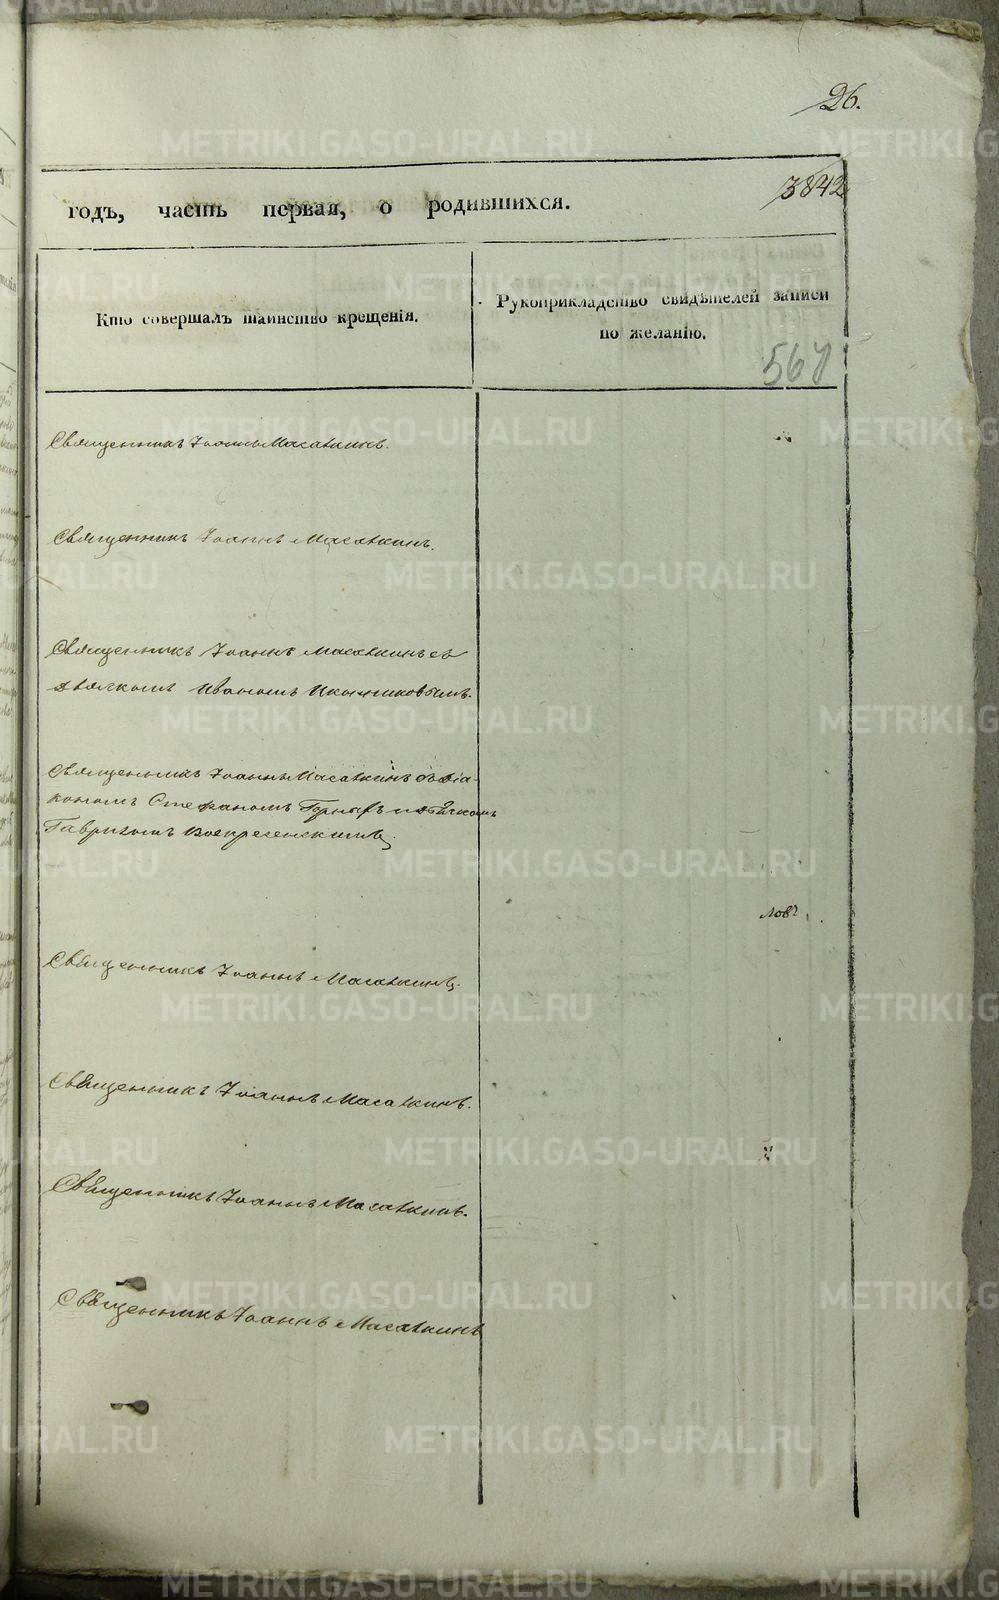 26.
3842
годъ, часть первая, о родившихся.
Кто совершалъ таинство крещенія.
Рукоприкладство свидѣтелей записи
по желанію.
567
Священникъ Іоаннъ Масалкинъ.
Священникъ Іоаннъ Масалкинъ.
Священникъ Іоаннъ Масалкинъ съ
дьячкомъ Иваномъ Иконниковымъ.
Священникъ Іоаннъ Масалкинъ съ діа-
кономъ Стефаномъ и дьячкомъ
Гавриломъ Воскресенскимъ.
Священникъ Іоаннъ Масалкинъ.
Священникъ Іоаннъ Масалкинъ.
Священникъ Іоаннъ Масалкинъ.
Священникъ Іоаннъ Масалкинъ
METRIKI.GASO-URAL.RU